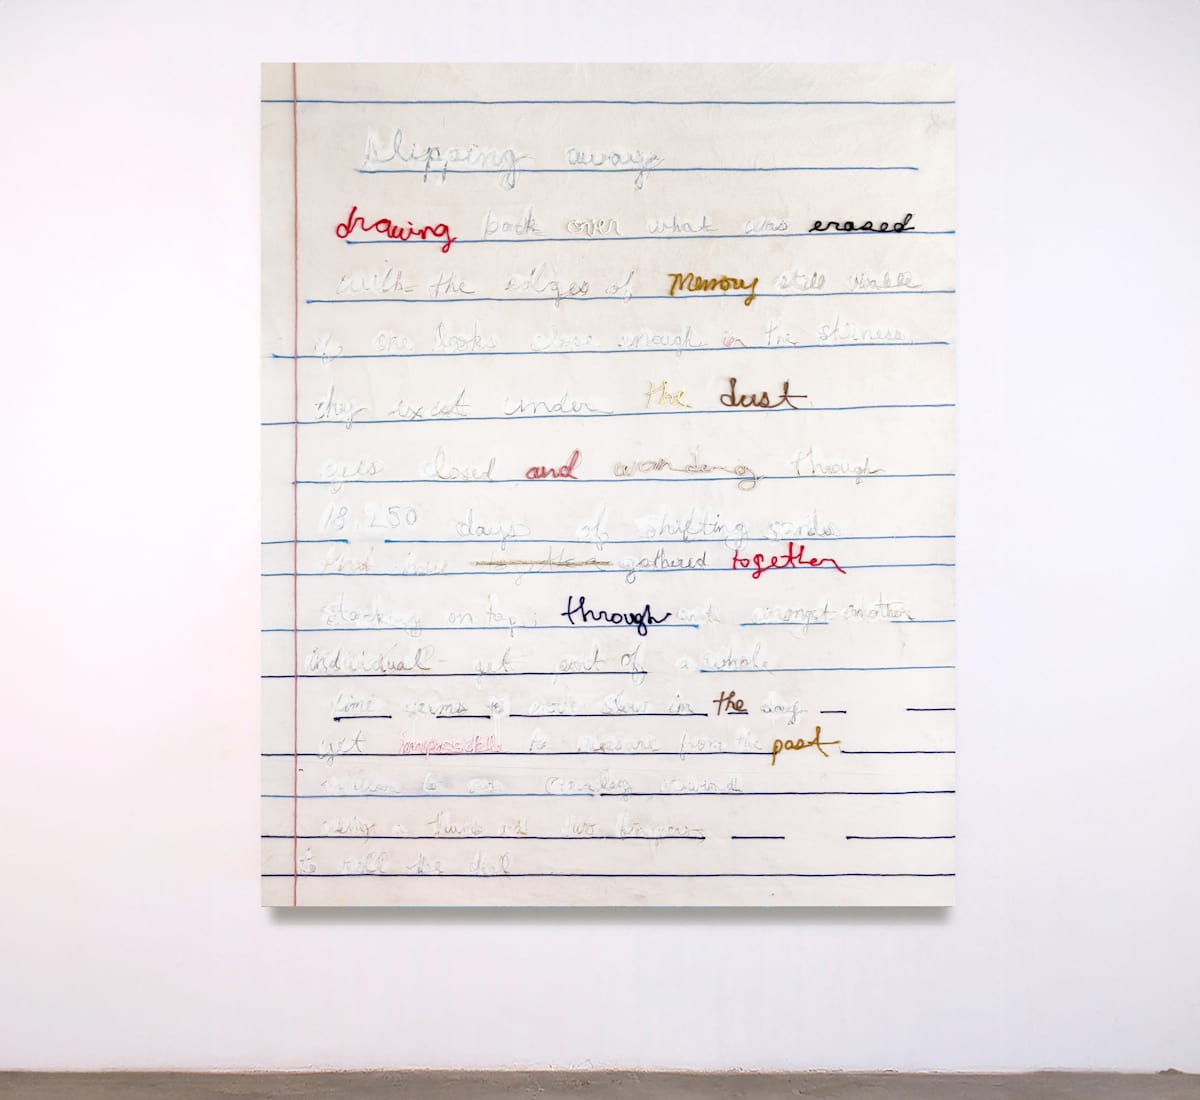 Slipping away
drawing back over what was erased
with the edges of Memory still visable
if one looks close enough in the shiness
they exist under the dust
closed and through
18,250 days of shifting sands
And have gathered together
stacking on top, through amongst another
individual yet part of a whole
time seems to move slow in the day
yet impossible to measure from the past
to an analog rewind
using a thumb and two fingers
to roll the dial